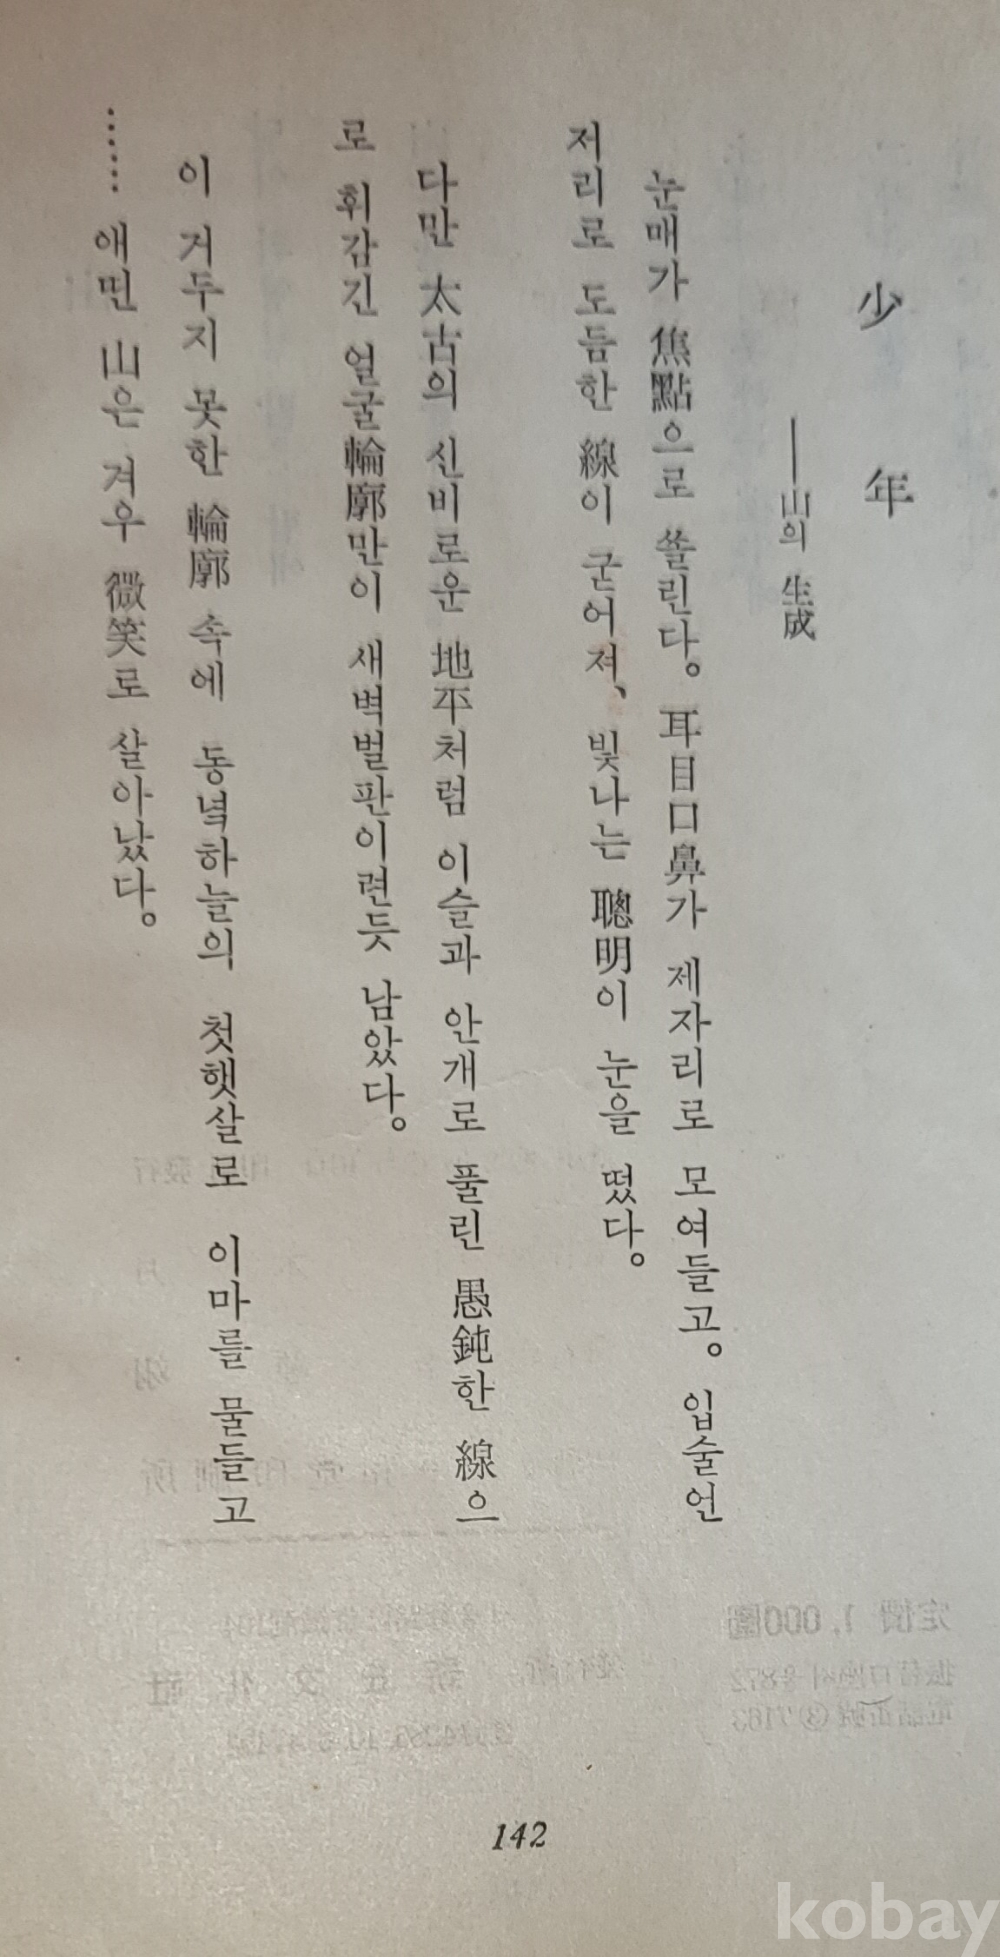 少年
——山의 生成
눈매가 焦點으로 쏠린다。耳目口鼻가 제자리로 모여들고。입술언
저리로 도듬한 線이 굳어져、빛나는 聰明이 눈을 떴다。
다만 太古의 신비로운 地平처럼 이슬과 안개로 풀린 愚鈍한 線으
로 휘감긴 얼굴輪廓만이 새벽벌판이련듯 남았다。
이 거두지 못한 輪廓 속에 동녘하늘의 첫햇살로 이마를 물들고
……애띤 山은 겨우 微笑로 살아났다。
142
kobay